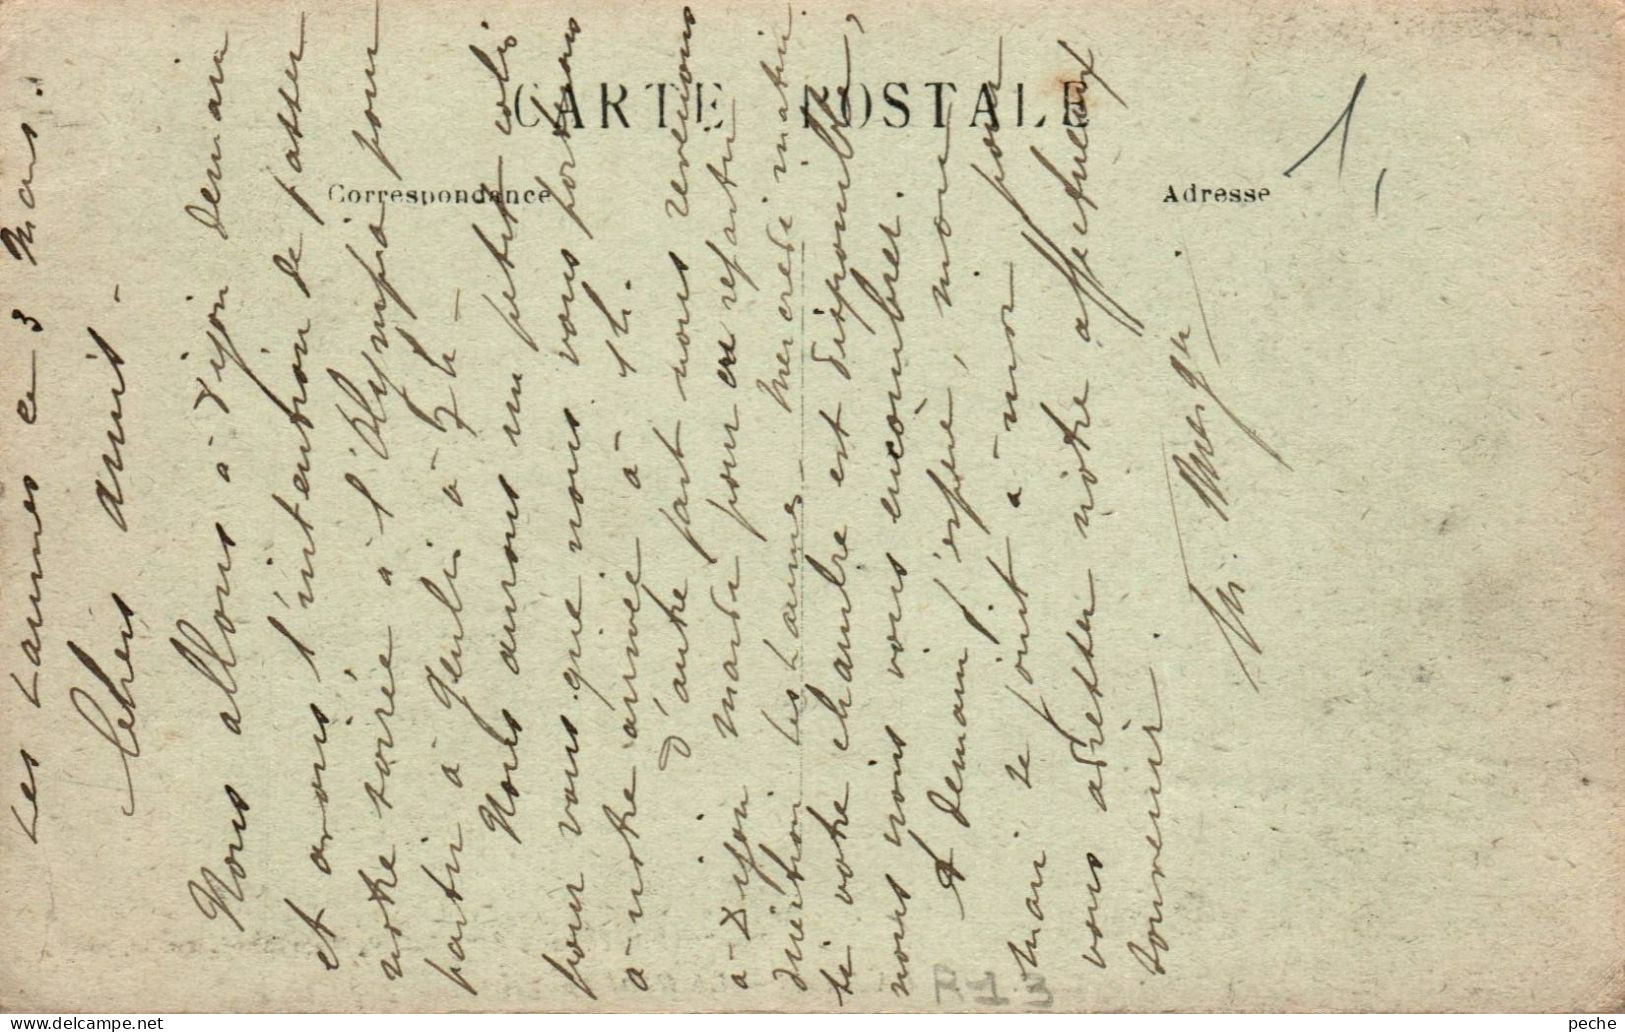 CARTE POSTALE
Correspondance
Adresse
1,
Les Laumes ce 3 Mars.
Chers amis -
Nous allons à Dijon demain
et avons l'intention de passer
notre soirée à l'Olympia pour
partir à Genlis à 7h -
Nous aurons un petit colis
pour vous que nous vous portons
à notre arrivée à 1h.
D'autre part nous revenions
à Dijon mardi pour en repartir
direction Les Laumes - Mercredi matin.
si votre chambre est disponible,
nous irons vous encombrer.
A demain j'espère, mon
mari se joint à moi pour
vous adresser notre affectueux
souvenir.
M.
A13
peche